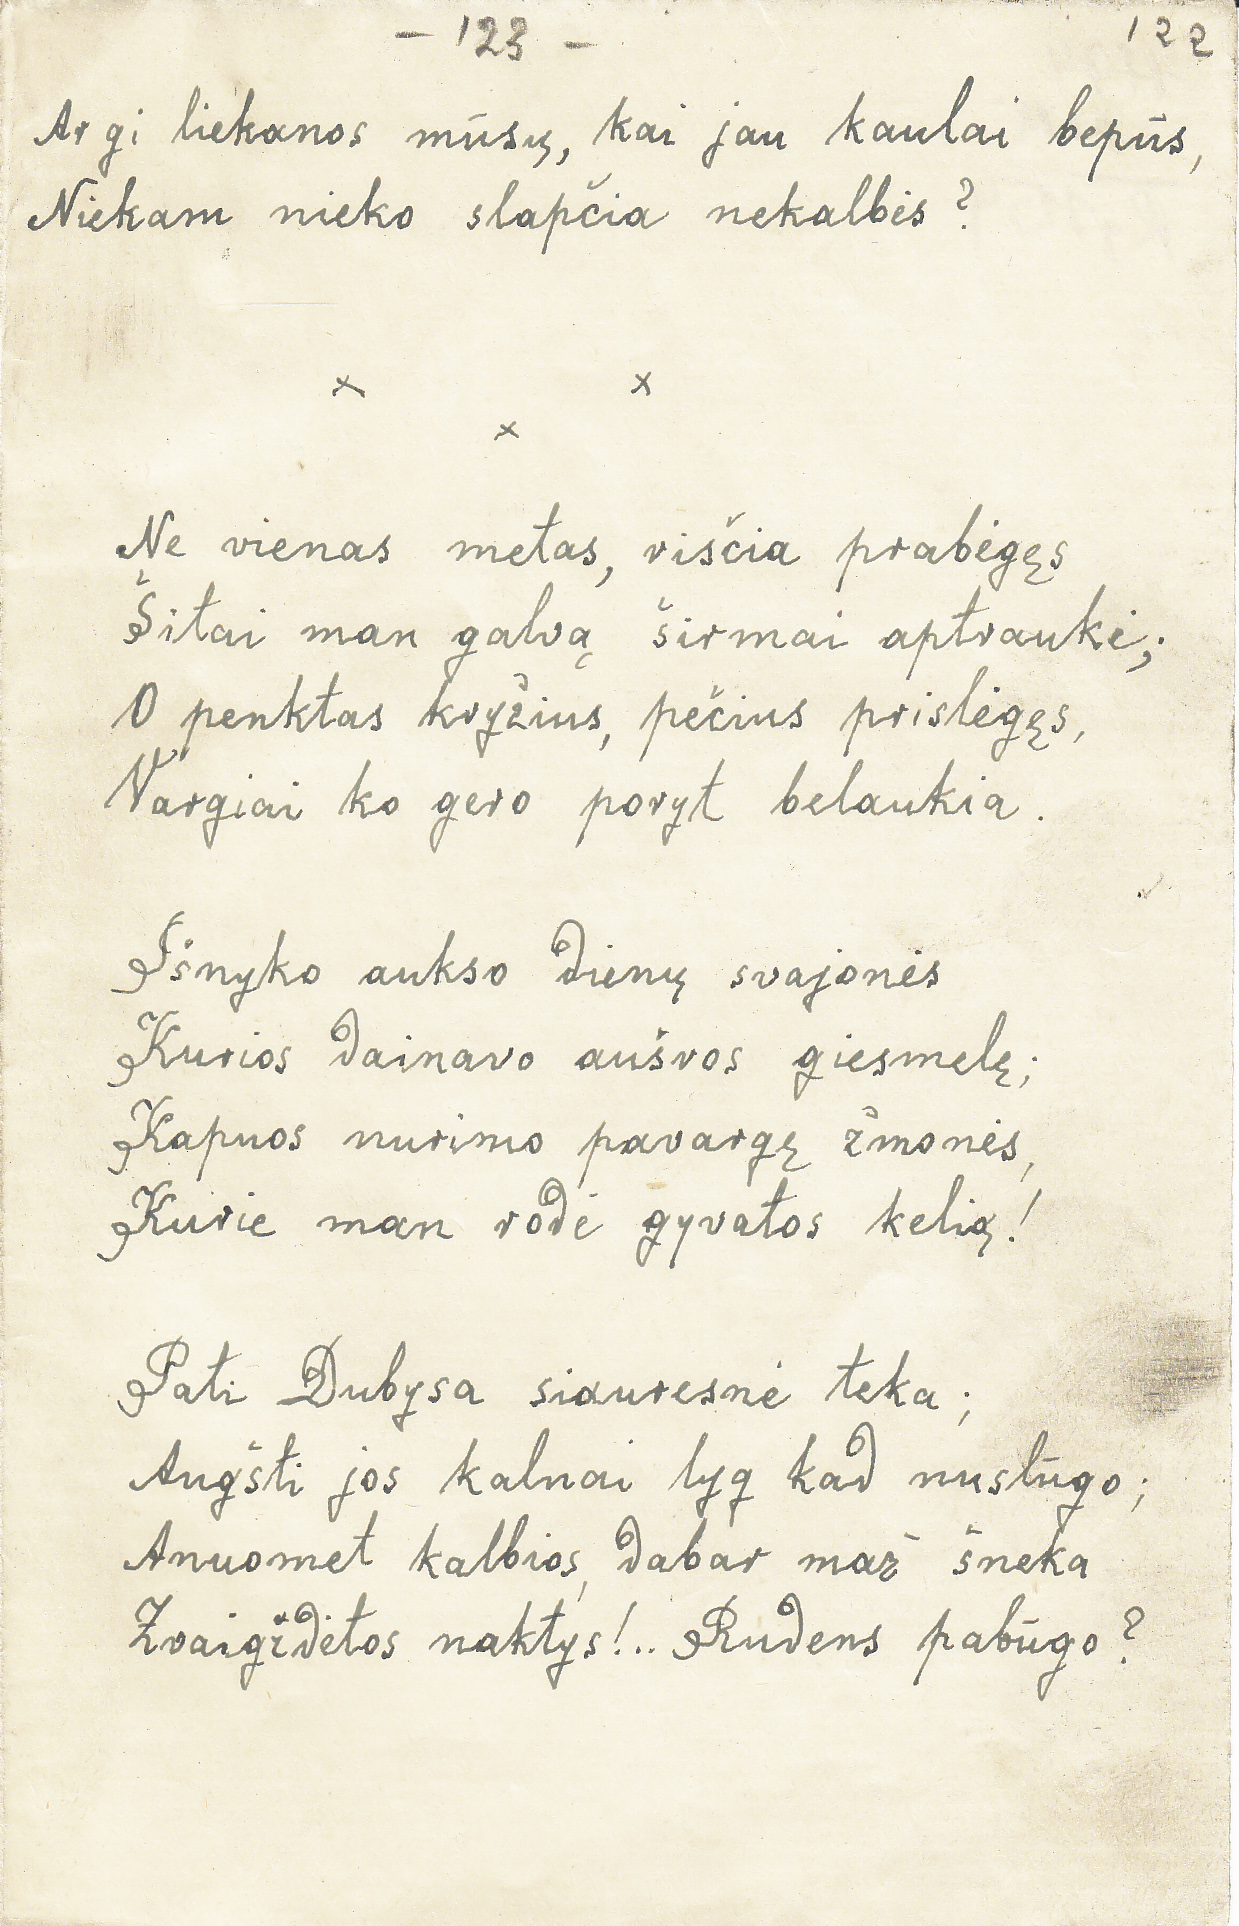 – 123 –
122
Ar gi liekanos mūsų, kai jau kaulai bepūs,
Niekam nieko slapčia nekalbės?
x x
x
Ne vienas metas, visčia prabėgęs
Šitai man galvą širmai aptraukė;
O penktas kryžius, pečius prislėgęs,
Vargiai ko gero poryt belaukia.
Išnyko aukso dienų svajonės
Kurios dainavo aušros giesmelę;
Kapuos nurimo pavargę žmonės,
Kurie man rodė gyvatos kelią!
Pati Dubysa siauresnė teka;
Augšti jos kalnai lyg kad nuslūgo;
Anuomet kalbios, dabar maž šneka
Žvaigždėtos naktys!.. Rudens pabūgo?